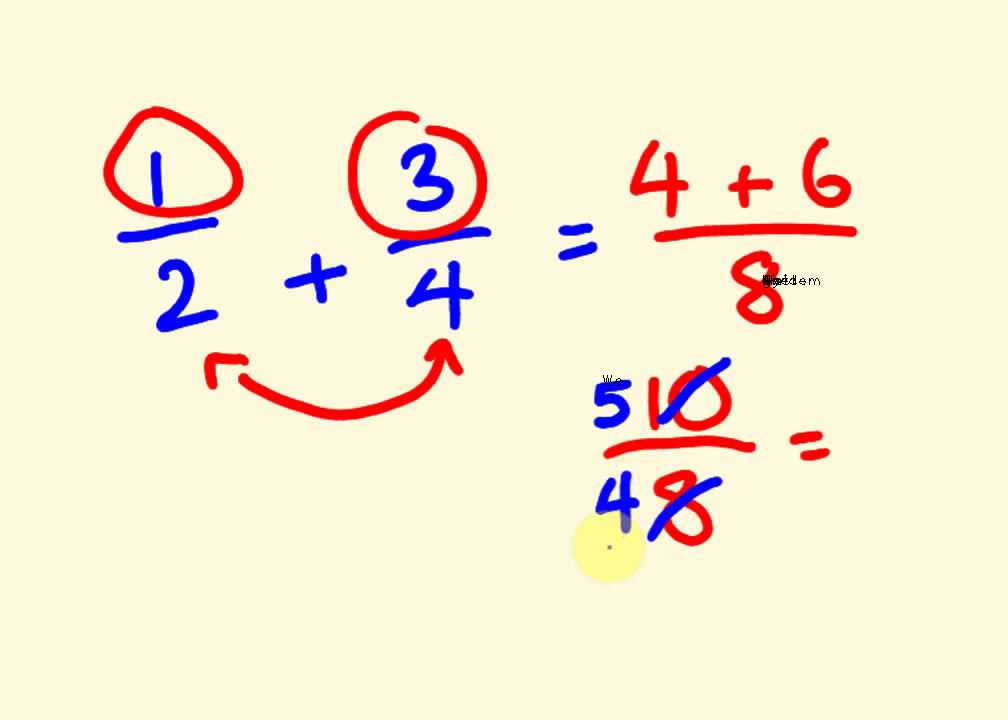 1/2 + 3/4 = 4 + 6/8
We
5 10/4 8 =